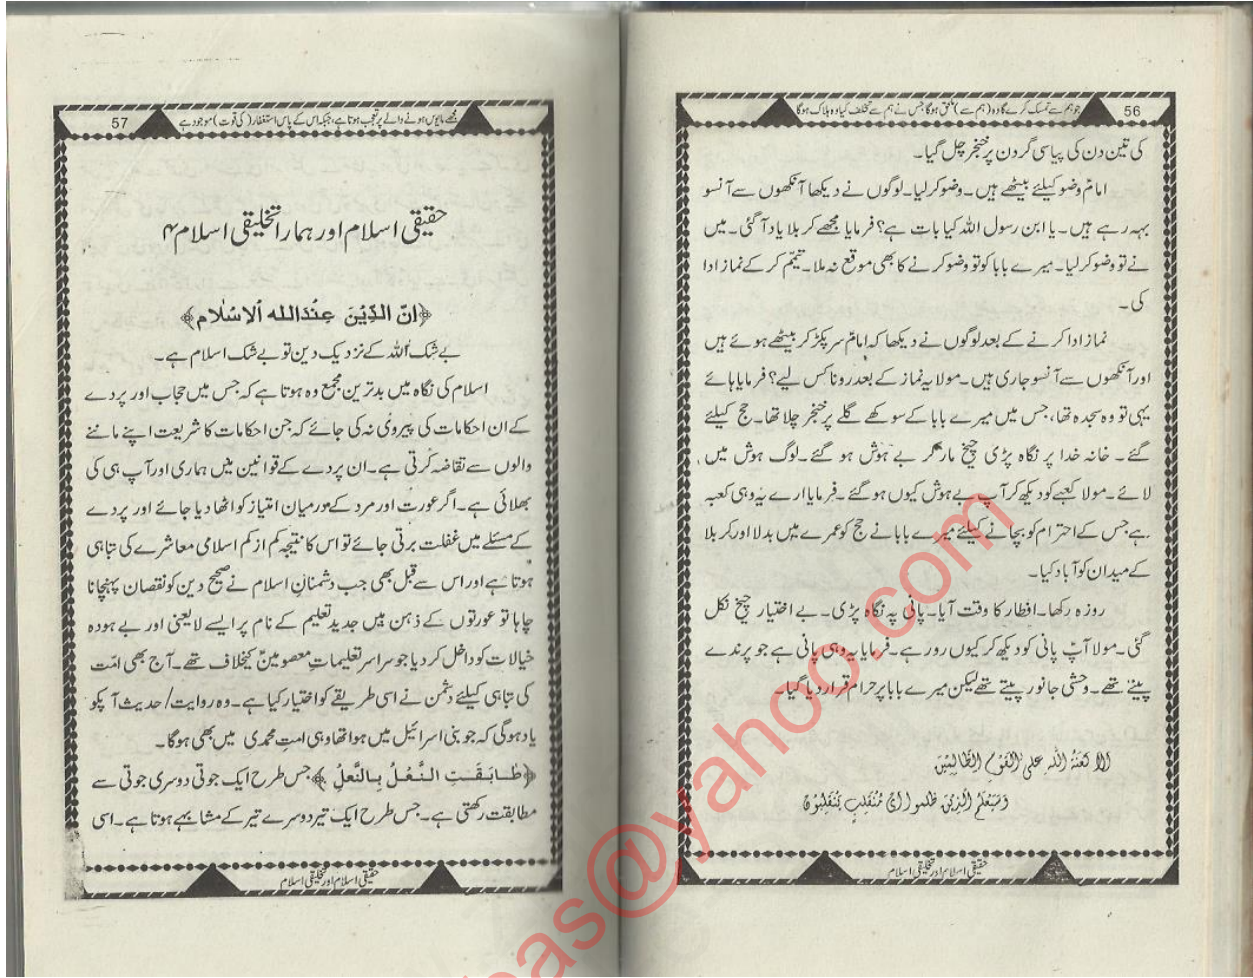 56
جو ہم سے تمسک کرے گا وہ (ہم سے) ملحق ہوگا جس نے ہم سے تخلف کیا وہ ہلاک ہوگا
کی تین دن کی پیاسی گردن پر خنجر چل گیا۔
امامؑ وضو کیلئے بیٹھے ہیں۔ وضو کر لیا۔ لوگوں نے دیکھا آنکھوں سے آنسو
بہہ رہے ہیں۔ یا ابن رسول اللہ کیا بات ہے؟ فرمایا مجھے کربلا یاد آ گئی۔ میں
نے تو وضو کر لیا۔ میرے بابا کو تو وضو کرنے کا بھی موقع نہ ملا۔ تیمّم کر کے نماز ادا
کی۔
نماز ادا کرنے کے بعد لوگوں نے دیکھا کہ امامؑ سر پکڑ کر بیٹھے ہوئے ہیں
اور آنکھوں سے آنسو جاری ہیں۔ مولا یہ نماز کے بعد رونا کس لیے؟ فرمایا ہائے
یہی تو وہ سجدہ تھا، جس میں میرے بابا کے سوکھے گلے پر خنجر چلا تھا۔ حج کیلئے
گئے۔ خانہ خدا پر نگاہ پڑی چیخ مار کر بے ہوش ہو گئے۔ لوگ ہوش میں
لائے۔ مولا کعبے کو دیکھ کر آپ بے ہوش کیوں ہو گئے۔ فرمایا ارے یہ وہی کعبہ
ہے جس کے احترام کو بچانے کیلئے میرے بابا نے حج کو عمرے میں بدلا اور کربلا
کے میدان کو آباد کیا۔
روزہ رکھا۔ افطار کا وقت آیا۔ پانی پہ نگاہ پڑی۔ بے اختیار چیخ نکل
گئی۔ مولا آپؑ پانی کو دیکھ کر کیوں رو رہے۔ فرمایا یہ وہی پانی ہے جو پرندے
پیتے تھے۔ وحشی جانور پیتے تھے لیکن میرے بابا پر حرام قرار دیا گیا۔
الا لعنة الله علی القوم الظالمین
وَسَیَعلَمُ الَّذِینَ ظلموا اَیَّ مُنقَلَبٍ یَّنقَلِبُونَ
حقیقی اسلام اور تخلیقی اسلام
57
مجھے مایوس ہونے والے پر تعجب ہوتا ہے، جبکہ اس کے پاس استغفار (کی قوت) موجود ہے
حقیقی اسلام اور ہمارا تخلیقی اسلام ۴
﴿اِنّ الدِّیْنَ عِنْدَ اللہ الْاِسْلَام﴾
بے شک اللہ کے نزدیک دین تو بے شک اسلام ہے۔
اسلام کی نگاہ میں بدترین مجمع وہ ہوتا ہے کہ جس میں حجاب اور پردے
کے ان احکامات کی پیروی نہ کی جائے کہ جن احکامات کا شریعت اپنے ماننے
والوں سے تقاضہ کرتی ہے۔ ان پردے کے قوانین میں ہماری اور آپ ہی کی
بھلائی ہے۔ اگر عورت اور مرد کے درمیان امتیاز کو اٹھا دیا جائے اور پردے
کے مسئلے میں غفلت برتی جائے تو اس کا نتیجہ کم از کم اسلامی معاشرے کی تباہی
ہوتا ہے اور اس سے قبل بھی جب دشمنانِ اسلام نے صحیح دین کو نقصان پہنچانا
چاہا تو عورتوں کے ذہن میں جدید تعلیم کے نام پر ایسے لا یعنی اور بے ہودہ
خیالات کو داخل کر دیا جو سراسر تعلیماتِ معصومینؑ کیخلاف تھے۔ آج بھی امّت
کی تباہی کیلئے دشمن نے اسی طریقے کو اختیار کیا ہے۔ وہ روایت/ حدیث آپکو
یاد ہوگی کہ جو بنی اسرائیل میں ہوا تھا وہی امتِ محمدی میں بھی ہوگا۔
﴿طَابَقَتِ النَّعْلُ بِالنَّعْلِ﴾ جس طرح ایک جوتی دوسری جوتی سے
مطابقت رکھتی ہے۔ جس طرح ایک تیر دوسرے تیر کے مشابہے ہوتا ہے۔ اسی
حقیقی اسلام اور تخلیقی اسلام
bas@yahoo.com